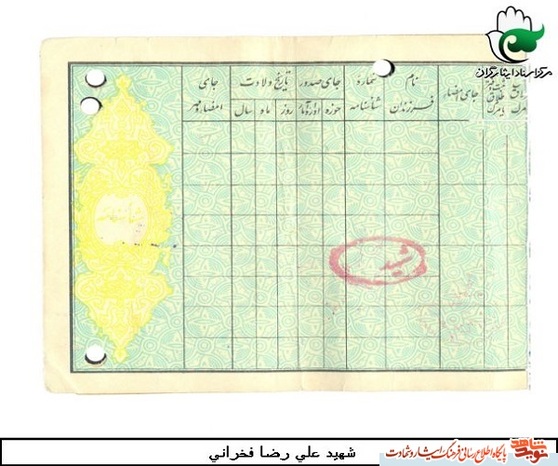 مرکز اسناد ایثارگران
نام فرزندان
شماره شناسنامه
جای صدور
حوزه اداره آمار
تاریخ ولادت
روز ماه سال
جای امضاء و مهر
جای امضاء
طلاق
شهید
شهيد علي رضا فخراني
نوید شاهد
پایگاه اطلاع رسانی فرهنگ ایثار و شهادت